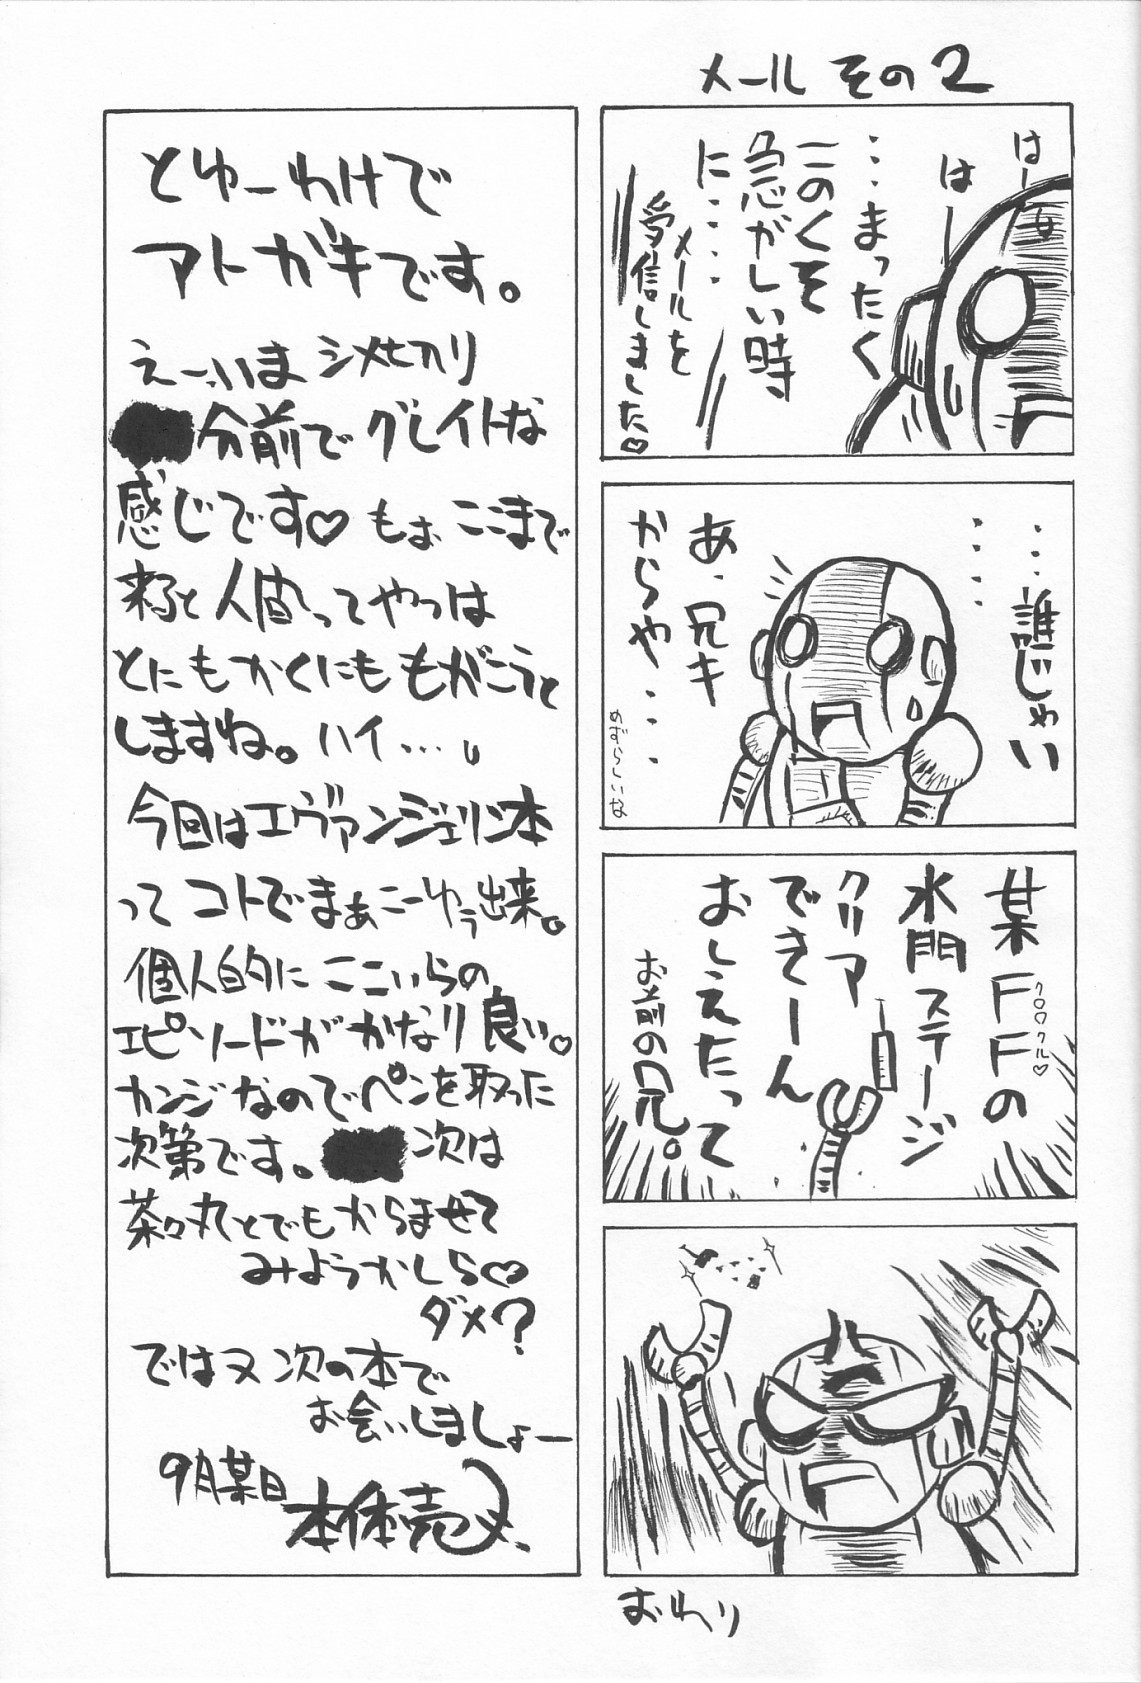 メール その2
はー
はー
・・・まったく
このくそ
急がしい時
に・・・・
メールを
受信しました♡
・・・誰じゃい
・・・・
あ、兄キ
からや・・・
めずらしいな
某FFの
クロワクル♡
水門ステージ
クリア
できーん
おしえたって
お前の兄。
おわり
とゆーわけで
アトガキです。
えー、いまシメ切り
分前でグレイトな
感じです♡ もぉ ここまで
来ると人間ってやつは
とにもかくにももがこうと
しますね。ハイ・・・。
今回はエヴァンジェリン本
ってコトでまぁこーゆぅ出来。
個人的にここいらの
エピソードがかなり良い♡
カンジなのでペンを取った
次第です。 次は
茶々丸とでもからませて
みようかしら♡
ダメ?
ではヌ 次の本で
お会いしましょー
9月某日
本体売